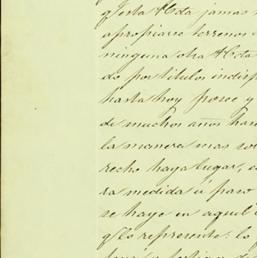 q'esta Hda jamas
apropiarse terrenos
ninguna otra Hda
do por titulos indisp
hasta hoy posee y
de muchos años han
la manera mas so
recho haya lugar, c
ra medida ú paso
se haye en aquel
q' lo represente: lo